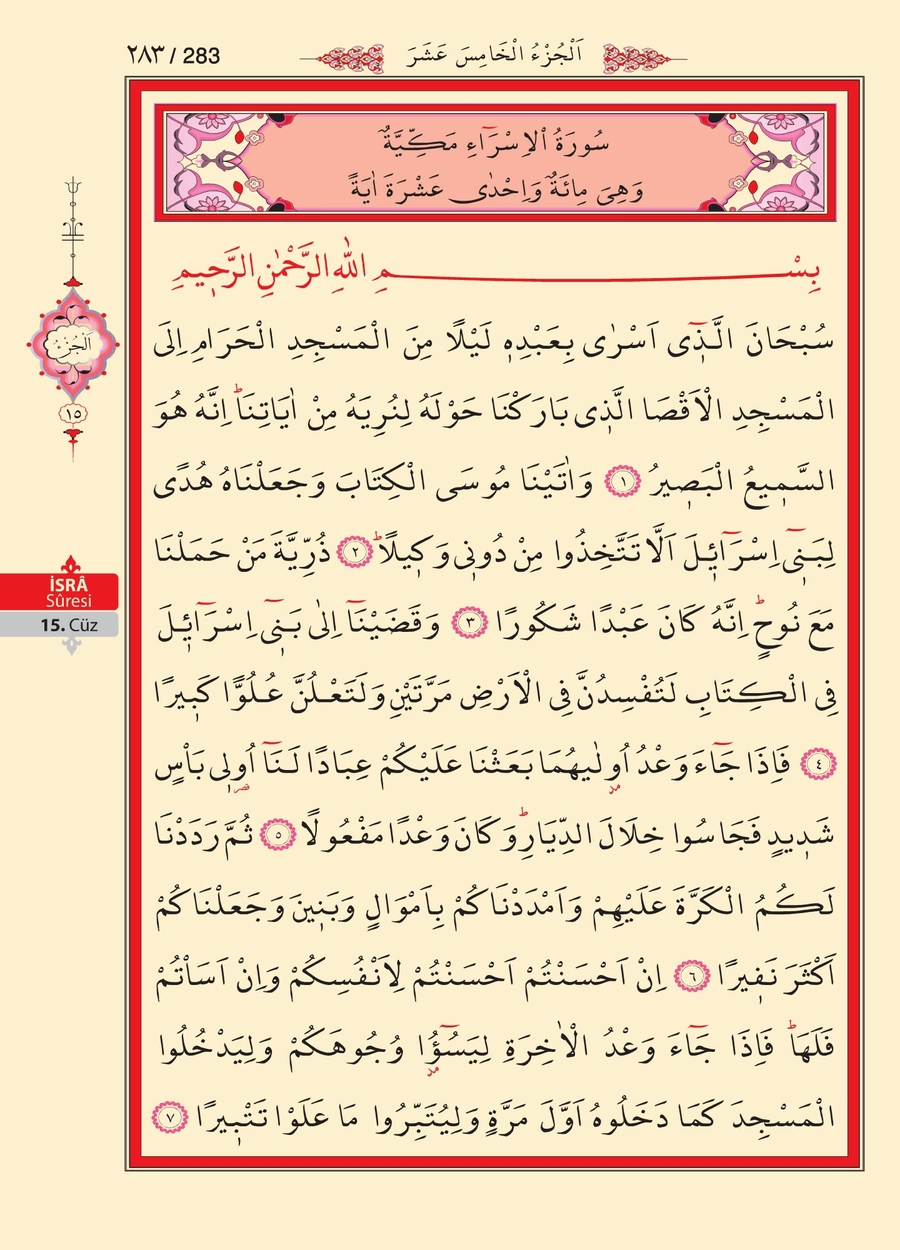 اَلْجُزْءُ الْخَامِسَ عَشَرَ
٢٨٣ / 283
سُورَةُ الْاِسْرَٓاءِ مَكِّيَّةٌ
وَهِىَ مِائَةٌ وَاِحْدٰى عَشْرَةَ اٰيَةً
بِسْمِ اللّٰهِ الرَّحْمٰنِ الرَّحٖيمِ
سُبْحَانَ الَّذٖٓى اَسْرٰى بِعَبْدِهٖ لَيْلًا مِنَ الْمَسْجِدِ الْحَرَامِ اِلَى
الْمَسْجِدِ الْاَقْصَا الَّذٖى بَارَكْنَا حَوْلَهُ لِنُرِيَهُ مِنْ اٰيَاتِنَاؕ اِنَّهُ هُوَ
السَّمٖيعُ الْبَصٖيرُ ﴿١﴾ وَاٰتَيْنَا مُوسَى الْكِتَابَ وَجَعَلْنَاهُ هُدًى
لِبَنٖٓى اِسْرَٓائٖلَ اَلَّا تَتَّخِذُوا مِنْ دُونٖى وَكٖيلًاؕ ﴿٢﴾ ذُرِّيَّةَ مَنْ حَمَلْنَا
مَعَ نُوحٍؕ اِنَّهُ كَانَ عَبْدًا شَكُورًا ﴿٣﴾ وَقَضَيْنَٓا اِلٰى بَنٖٓى اِسْرَٓائٖلَ
فِى الْكِتَابِ لَتُفْسِدُنَّ فِى الْاَرْضِ مَرَّتَيْنِ وَلَتَعْلُنَّ عُلُوًّا كَبٖيرًا
﴿٤﴾ فَاِذَا جَٓاءَ وَعْدُ اُو۫لٰيهُمَا بَعَثْنَا عَلَيْكُمْ عِبَادًا لَنَٓا اُو۬لٖى بَاْسٍ
شَدٖيدٍ فَجَاسُوا خِلَالَ الدِّيَارِؕ وَكَانَ وَعْدًا مَفْعُولًا ﴿٥﴾ ثُمَّ رَدَدْنَا
لَكُمُ الْكَرَّةَ عَلَيْهِمْ وَاَمْدَدْنَاكُمْ بِاَمْوَالٍ وَبَنٖينَ وَجَعَلْنَاكُمْ
اَكْثَرَ نَفٖيرًا ﴿٦﴾ اِنْ اَحْسَنْتُمْ اَحْسَنْتُمْ لِاَنْفُسِكُمْ وَاِنْ اَسَاْتُمْ
فَلَهَاؕ فَاِذَا جَٓاءَ وَعْدُ الْاٰخِرَةِ لِيَسُؤُٓ۫ا وُجُوهَكُمْ وَلِيَدْخُلُوا
الْمَسْجِدَ كَمَا دَخَلُوهُ اَوَّلَ مَرَّةٍ وَلِيُتَبِّرُوا مَا عَلَوْا تَتْبٖيرًا ﴿٧﴾
اَلْجُزْءُ
١٥
İSRÂ
Sûresi
15. Cüz